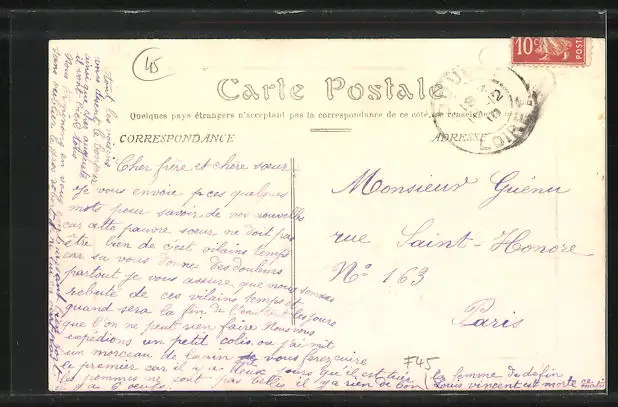 45
10c
POSTES
Carte Postale
Quelques pays étrangers n'acceptant pas la correspondance de ce côté, se renseigner
CORRESPONDANCE
ADRESSE
LOIRET
Cher frère et chère sœur
Je vous envoie ces quelques
mots pour savoir de vos nouvelles
car cette pauvre sœur ne doit pas
être bien de c'est vilains temps
car sa vous donne des douleurs
partout je vous assure que nous sommes
rebuté de ces vilains temps et
quand sera la fin de l'eau tous les jours
que l'on ne peut rien faire Nous vous
expédions un petit colis ou j'ai mit
un morceau de lapin vous ferez cuire
le premier car il y a deux jours qu'il est tuer
les pommes ne sont pas belles il y a rien de bon
il y a 6 œufs
la femme de défin
Louis vincent est morte ce matin
tous les voisins
vous donne le bonjour
ainsi que chez auguste
Nous vous
Monsieur Guénu
rue Saint-Honore
N° 163
Paris
F45